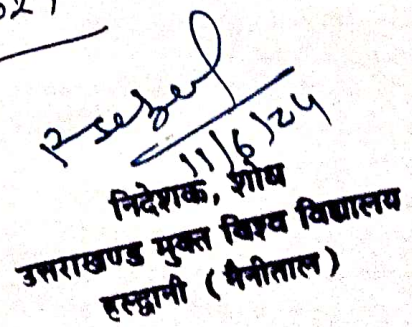 11/6/24
निदेशक, शोध
उत्तराखण्ड मुक्त विश्व विद्यालय
हल्द्वानी ( नैनीताल )